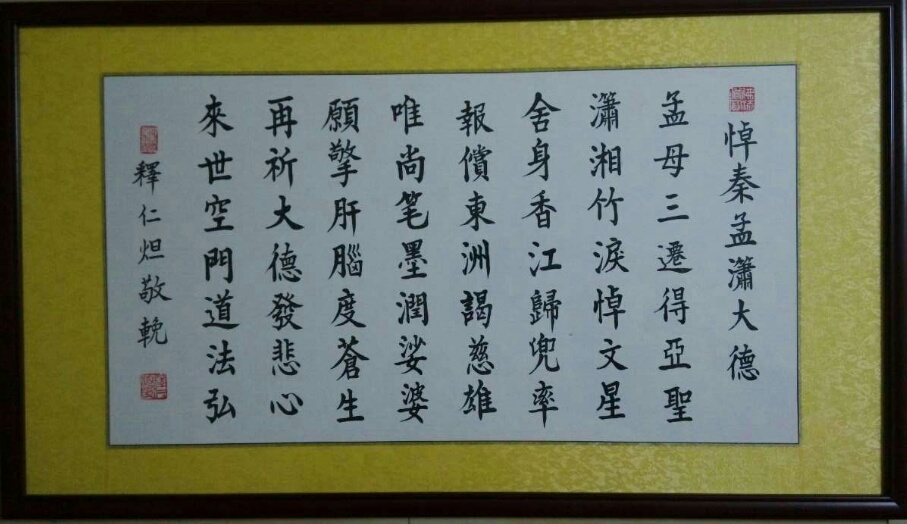 悼秦孟瀟大德
孟母三遷得亞聖
瀟湘竹淚悼文星
舍身香江歸兜率
報償東洲謁慈雄
唯尚笔墨潤娑婆
願擎肝腦度蒼生
再祈大德發悲心
來世空門道法弘
釋仁炟敬輓